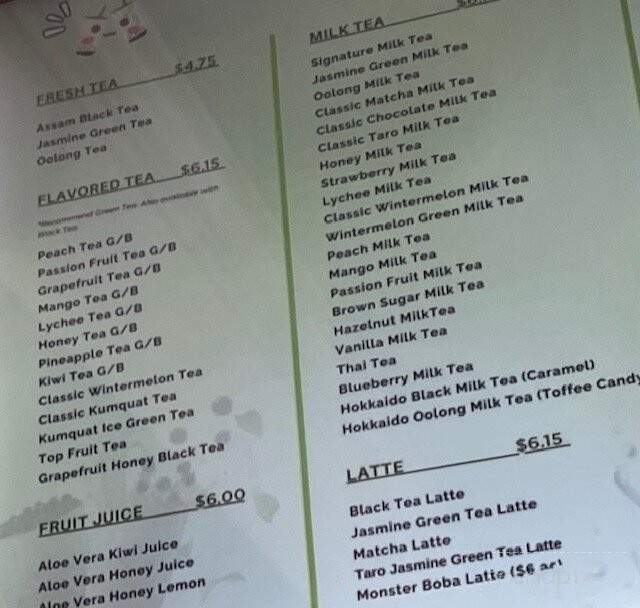 FRESH TEA $4.75
Assam Black Tea
Jasmine Green Tea
Oolong Tea
FLAVORED TEA $6.15
*Recommend Green Tea. Also available with
Black Tea
Peach Tea G/B
Passion Fruit Tea G/B
Grapefruit Tea G/B
Mango Tea G/B
Lychee Tea G/B
Honey Tea G/B
Pineapple Tea G/B
Kiwi Tea G/B
Classic Wintermelon Tea
Classic Kumquat Tea
Kumquat Ice Green Tea
Top Fruit Tea
Grapefruit Honey Black Tea
FRUIT JUICE $6.00
Aloe Vera Kiwi Juice
Aloe Vera Honey Juice
Aloe Vera Honey Lemon
MILK TEA
Signature Milk Tea
Jasmine Green Milk Tea
Oolong Milk Tea
Classic Matcha Milk Tea
Classic Chocolate Milk Tea
Classic Taro Milk Tea
Honey Milk Tea
Strawberry Milk Tea
Lychee Milk Tea
Classic Wintermelon Milk Tea
Wintermelon Green Milk Tea
Peach Milk Tea
Mango Milk Tea
Passion Fruit Milk Tea
Brown Sugar Milk Tea
Hazelnut MilkTea
Vanilla Milk Tea
Thai Tea
Blueberry Milk Tea
Hokkaido Black Milk Tea (Caramel)
Hokkaido Oolong Milk Tea (Toffee Candy
LATTE $6.15
Black Tea Latte
Jasmine Green Tea Latte
Matcha Latte
Taro Jasmine Green Tea Latte
Monster Boba Latte